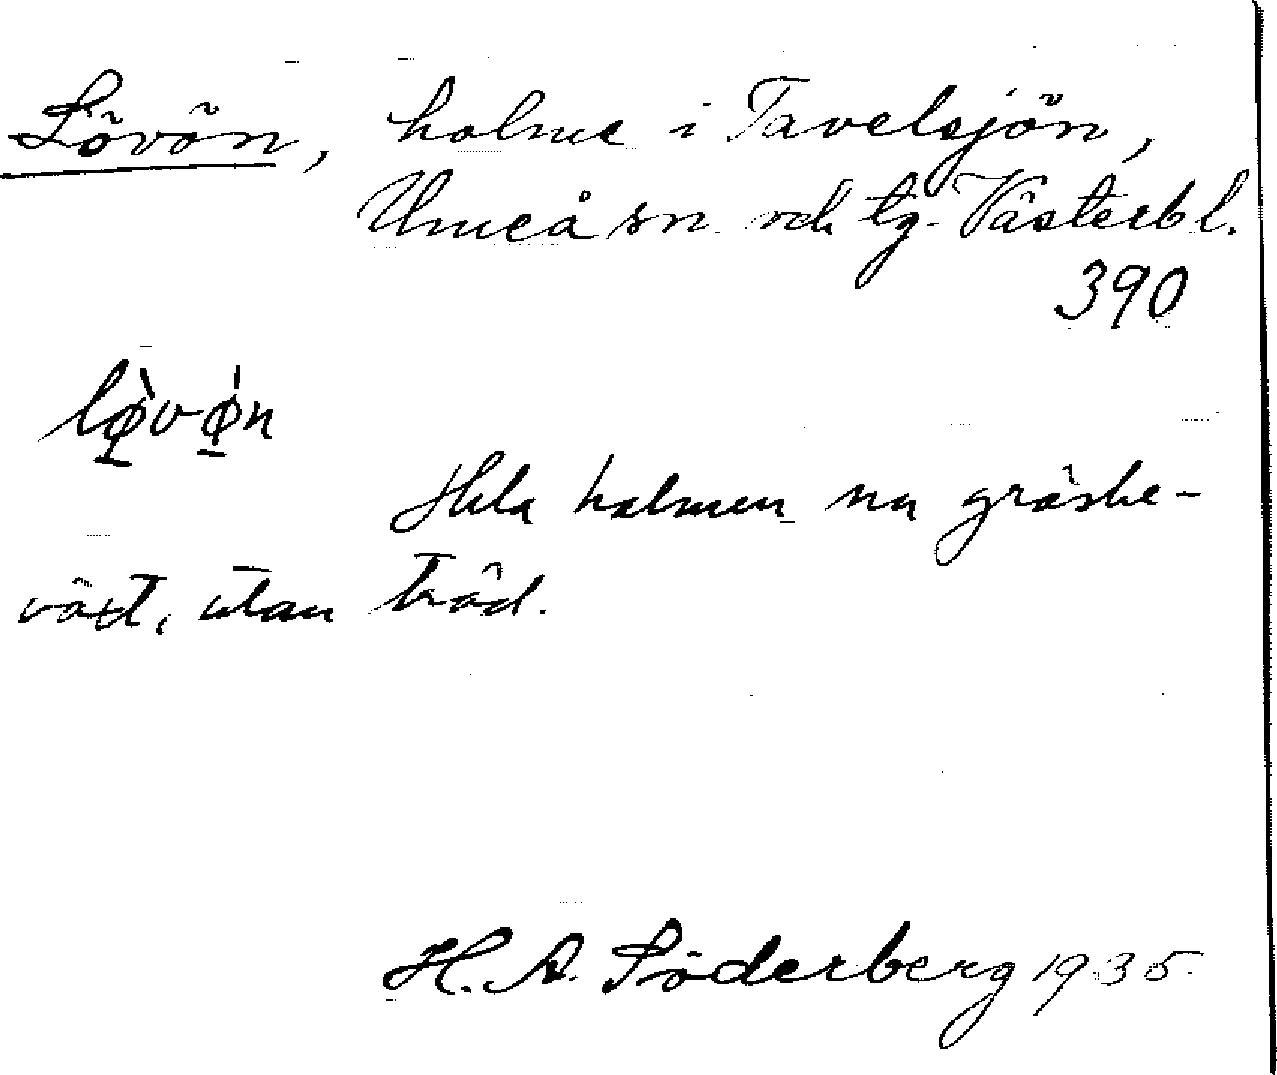 Lövön, holme i Tavelsjön,
Umeå sn och tg. Västerbl.
390
lø̀vø̀n
Hela holmen nu gräsbe-
växt, utan träd.
H. A. Söderberg 1935.